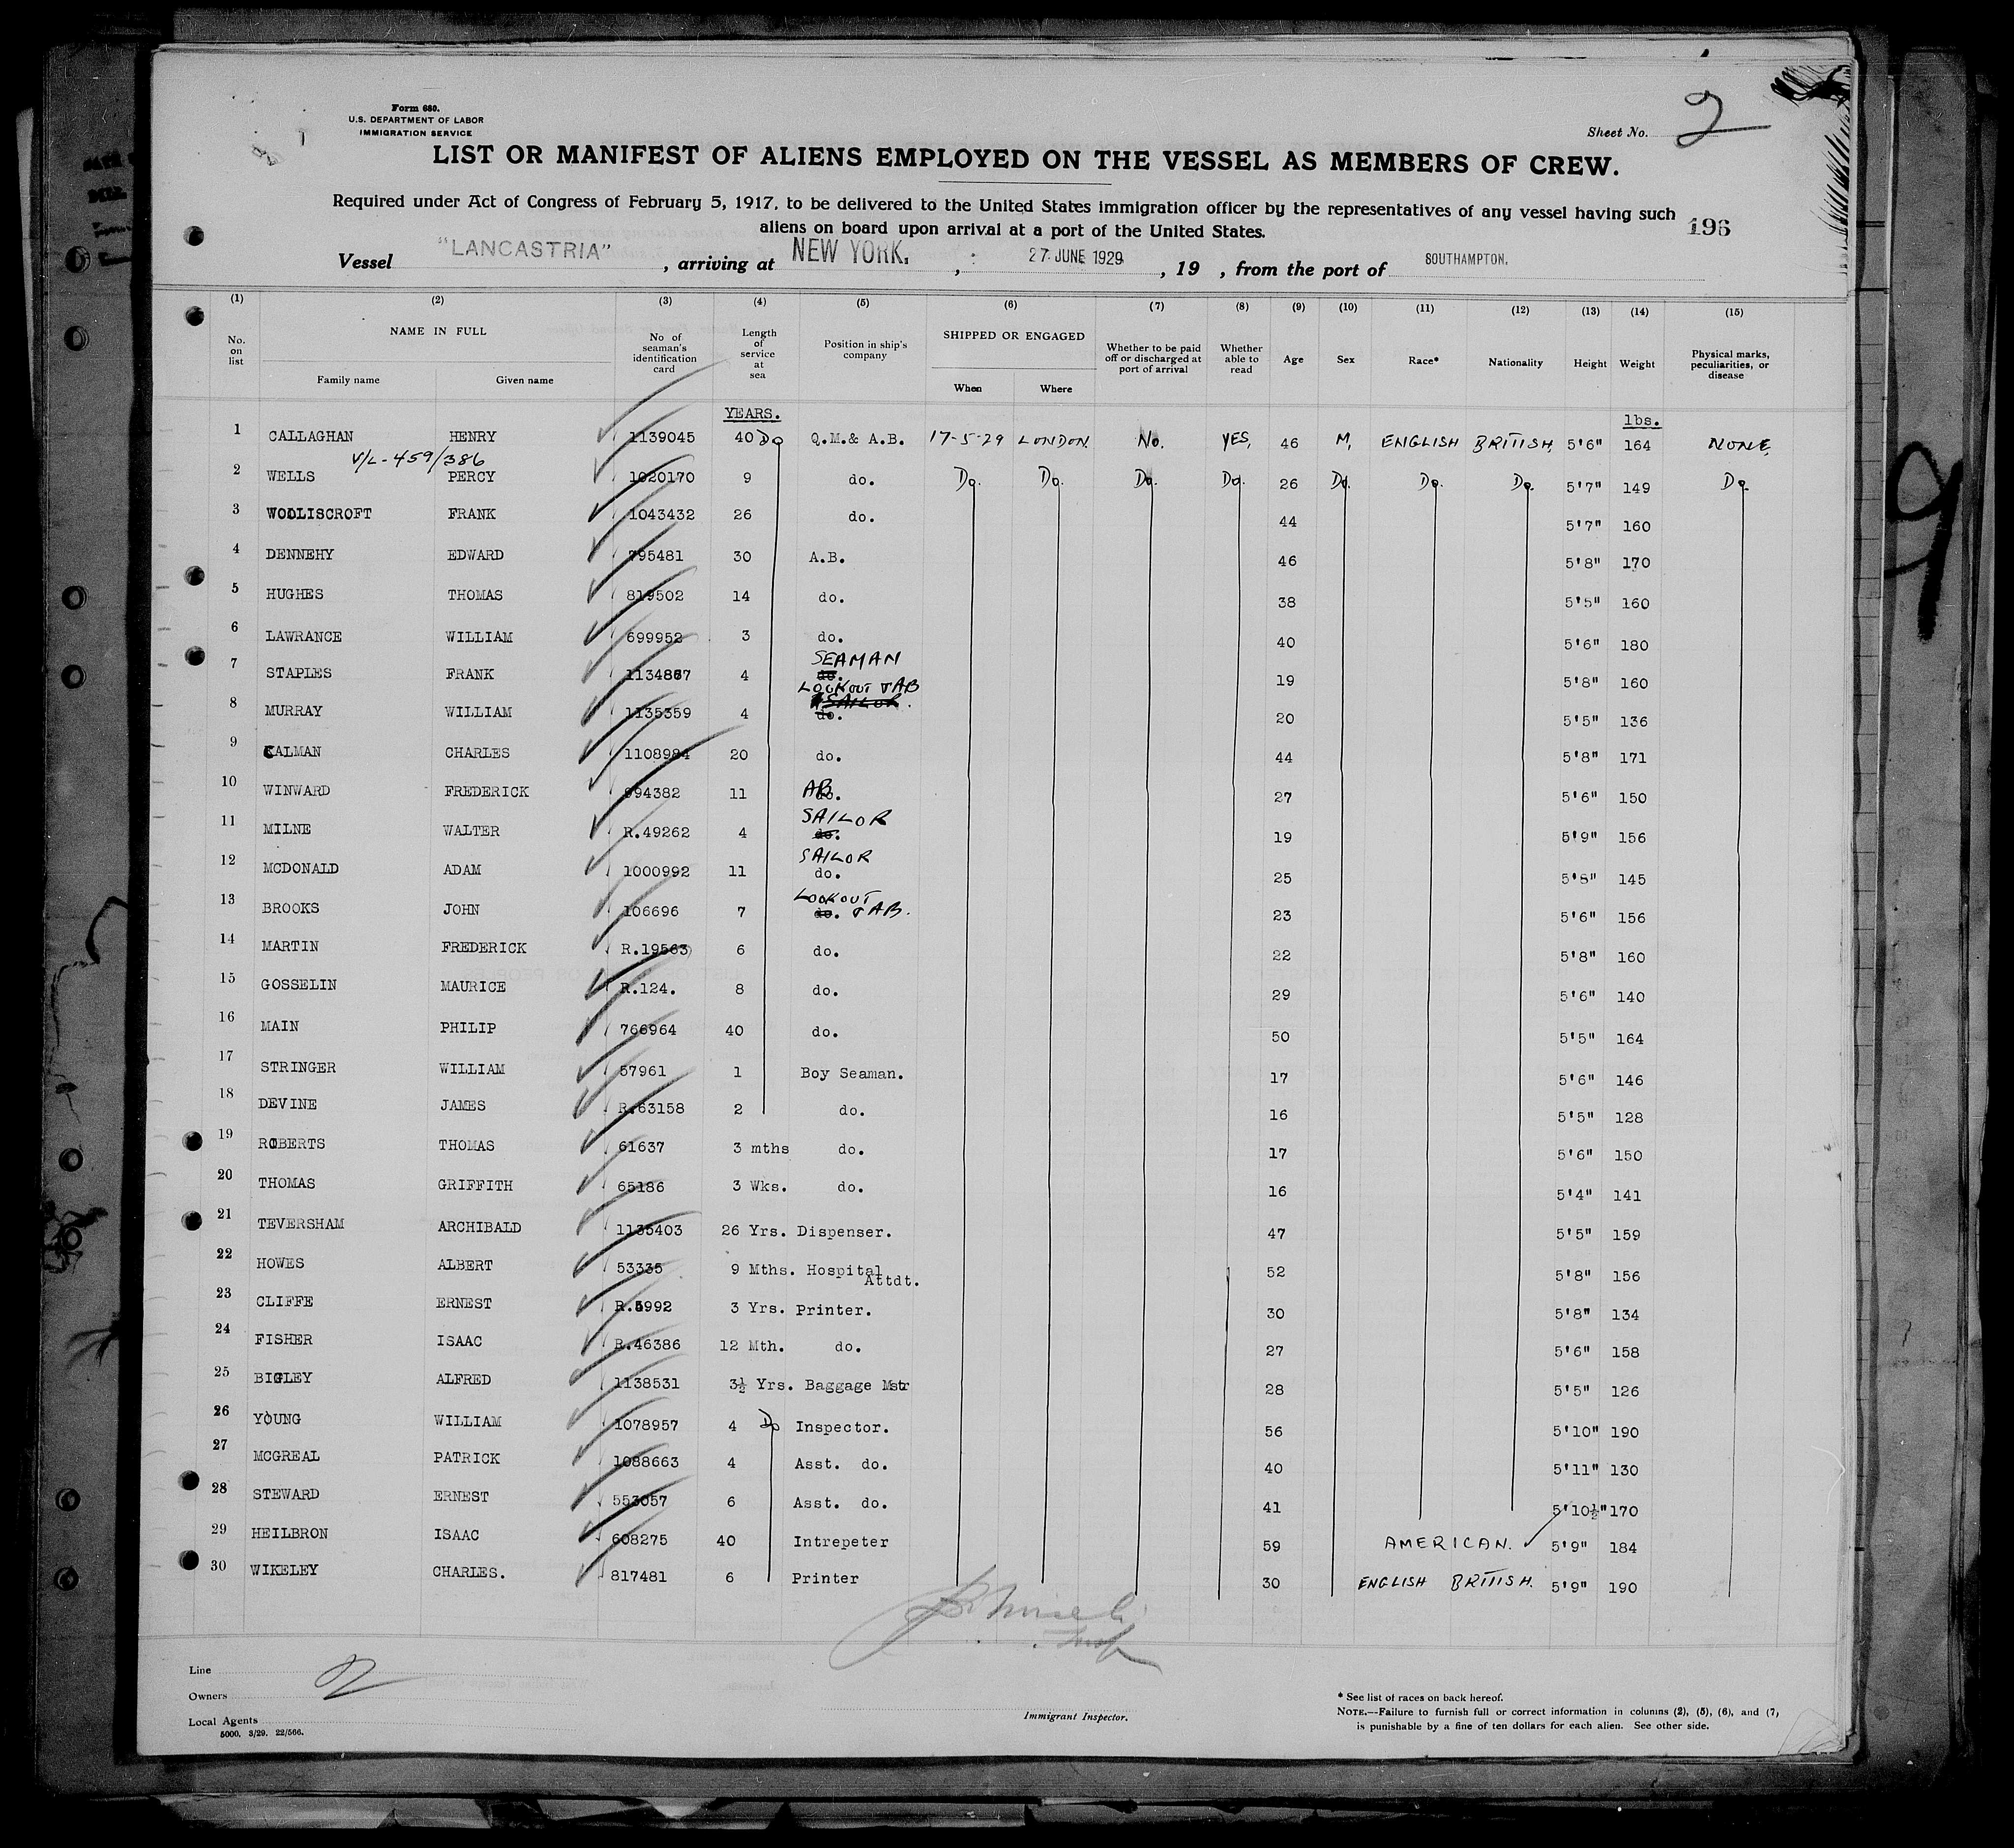 Form 680.
U.S. DEPARTMENT OF LABOR
IMMIGRATION SERVICE
Sheet No. 2
LIST OR MANIFEST OF ALIENS EMPLOYED ON THE VESSEL AS MEMBERS OF CREW.
Required under Act of Congress of February 5, 1917, to be delivered to the United States immigration officer by the representatives of any vessel having such
aliens on board upon arrival at a port of the United States.
196
Vessel "LANCASTRIA", arriving at NEW YORK, 27 JUNE 1929, 19 , from the port of SOUTHAMPTON.
(1) (2) (3) (4) (5) (6) (7) (8) (9) (10) (11) (12) (13) (14) (15)
No. on list NAME IN FULL Family name Given name No of seaman's identification card Length of service at sea Position in ship's company SHIPPED OR ENGAGED When Where Whether to be paid off or discharged at port of arrival Whether able to read Age Sex Race* Nationality Height Weight Physical marks, peculiarities, or disease
YEARS. lbs.
1 CALLAGHAN HENRY 1139045 40 Do Q.M.& A.B. 17-5-29 LONDON. No. YES, 46 M, ENGLISH BRITISH, 5'6" 164 NONE,
V/L-459/386
2 WELLS PERCY 1020170 9 do. Do. Do. Do. Do. 26 Do. Do. Do. 5'7" 149 Do
3 WOOLISCROFT FRANK 1043432 26 do. 44 5'7" 160
4 DENNEHY EDWARD 795481 30 A.B. 46 5'8" 170
5 HUGHES THOMAS 819502 14 do. 38 5'5" 160
6 LAWRANCE WILLIAM 699952 3 do. 40 5'6" 180
7 STAPLES FRANK 1134867 4 SEAMAN do. 19 5'8" 160
8 MURRAY WILLIAM 1135359 4 LOOKOUT & AB SAILOR. do. 20 5'5" 136
9 CALMAN CHARLES 1108984 20 do. 44 5'8" 171
10 WINWARD FREDERICK 994382 11 AB. do. 27 5'6" 150
11 MILNE WALTER R.49262 4 SAILOR do. 19 5'9" 156
12 MCDONALD ADAM 1000992 11 SAILOR do. 25 5'8" 145
13 BROOKS JOHN 106696 7 LOOKOUT do. & AB. 23 5'6" 156
14 MARTIN FREDERICK R.19563 6 do. 22 5'8" 160
15 GOSSELIN MAURICE R.124. 8 do. 29 5'6" 140
16 MAIN PHILIP 766964 40 do. 50 5'5" 164
17 STRINGER WILLIAM 57961 1 Boy Seaman. 17 5'6" 146
18 DEVINE JAMES R.63158 2 do. 16 5'5" 128
19 ROBERTS THOMAS 61637 3 mths do. 17 5'6" 150
20 THOMAS GRIFFITH 65186 3 Wks. do. 16 5'4" 141
21 TEVERSHAM ARCHIBALD 1135403 26 Yrs. Dispenser. 47 5'5" 159
22 HOWES ALBERT 53335 9 Mths. Hospital Attdt. 52 5'8" 156
23 CLIFFE ERNEST R.5992 3 Yrs. Printer. 30 5'8" 134
24 FISHER ISAAC R.46386 12 Mth. do. 27 5'6" 158
25 BIGLEY ALFRED 1138531 3½ Yrs. Baggage Mstr 28 5'5" 126
26 YOUNG WILLIAM 1078957 4 Do Inspector. 56 5'10" 190
27 MCGREAL PATRICK 1088663 4 Asst. do. 40 5'11" 130
28 STEWARD ERNEST 553057 6 Asst. do. 41 5'10½" 170
29 HEILBRON ISAAC 608275 40 Intrepeter 59 AMERICAN. 5'9" 184
30 WIKELEY CHARLES. 817481 6 Printer 30 ENGLISH BRITISH. 5'9" 190
Line
Owners
Local Agents
5000. 3/29. 22/566.
Immigrant Inspector.
* See list of races on back hereof.
NOTE.—Failure to furnish full or correct information in columns (2), (5), (6), and (7)
is punishable by a fine of ten dollars for each alien. See other side.